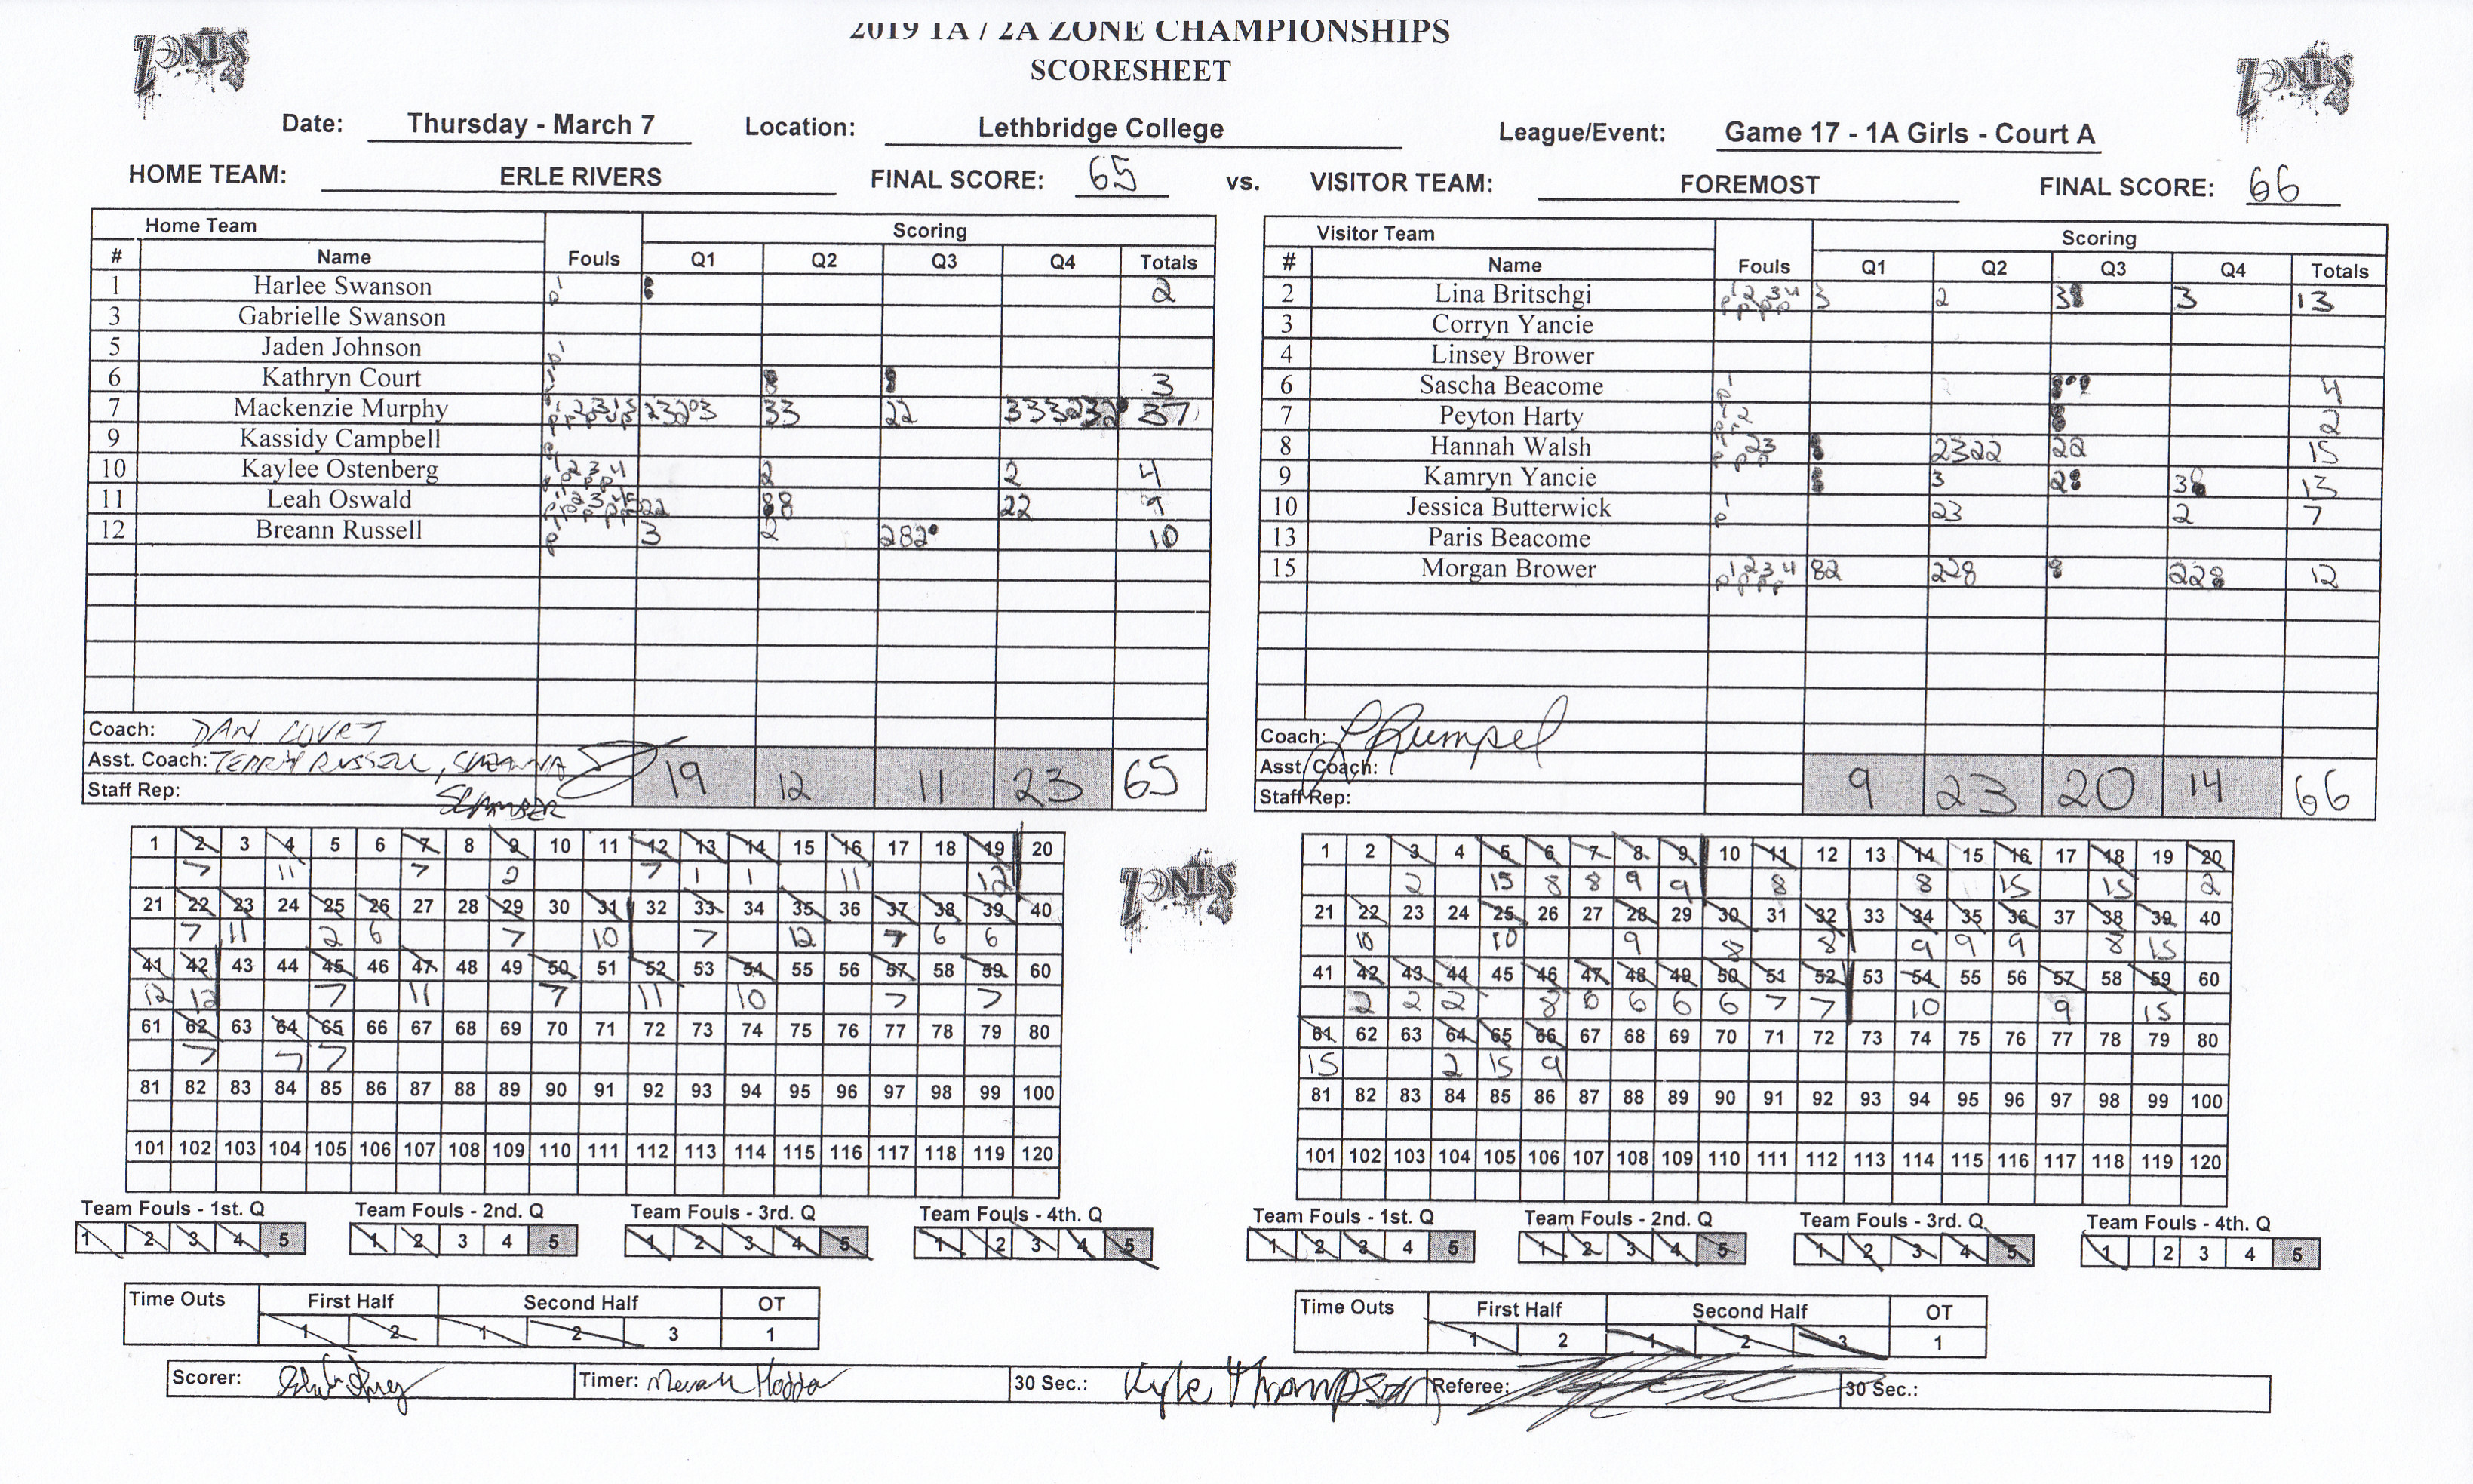 2019 1A / 2A ZONE CHAMPIONSHIPS
SCORESHEET
ZONES
ZONES
Date: Thursday - March 7 Location: Lethbridge College League/Event: Game 17 - 1A Girls - Court A
HOME TEAM: ERLE RIVERS FINAL SCORE: 65 vs. VISITOR TEAM: FOREMOST FINAL SCORE: 66
Home Team Fouls Scoring
# Name Q1 Q2 Q3 Q4 Totals
1 Harlee Swanson 2
3 Gabrielle Swanson
5 Jaden Johnson
6 Kathryn Court 3
7 Mackenzie Murphy 33 22 37
9 Kassidy Campbell
10 Kaylee Ostenberg 1 2 3 4 2 2 4
11 Leah Oswald 22 22 9
12 Breann Russell 3 2 10
Coach: DAN COURT
Asst. Coach: TERRY RUSSELL,
Staff Rep:
19 12 11 23 65
Visitor Team Fouls Scoring
# Name Q1 Q2 Q3 Q4 Totals
2 Lina Britschgi 1 2 3 4 3 2 3 3 13
3 Corryn Yancie
4 Linsey Brower
6 Sascha Beacome 4
7 Peyton Harty 2
8 Hannah Walsh 2322 22 15
9 Kamryn Yancie 3 2 3 13
10 Jessica Butterwick 23 2 7
13 Paris Beacome
15 Morgan Brower 1 2 3 4 82 228 228 12
Coach: L Rumpel
Asst. Coach:
Staff Rep:
9 23 20 14 66
1 2 3 4 5 6 7 8 9 10 11 12 13 14 15 16 17 18 19 20
7 11 7 2 7 1 1 11 12
21 22 23 24 25 26 27 28 29 30 31 32 33 34 35 36 37 38 39 40
7 11 2 6 7 10 7 12 7 6 6
41 42 43 44 45 46 47 48 49 50 51 52 53 54 55 56 57 58 59 60
12 12 7 11 7 11 10 7 7
61 62 63 64 65 66 67 68 69 70 71 72 73 74 75 76 77 78 79 80
7 7 7
81 82 83 84 85 86 87 88 89 90 91 92 93 94 95 96 97 98 99 100
101 102 103 104 105 106 107 108 109 110 111 112 113 114 115 116 117 118 119 120
ZONES
1 2 3 4 5 6 7 8 9 10 11 12 13 14 15 16 17 18 19 20
2 15 8 8 9 9 8 8 15 15 2
21 22 23 24 25 26 27 28 29 30 31 32 33 34 35 36 37 38 39 40
10 10 9 8 8 9 9 9 8 15
41 42 43 44 45 46 47 48 49 50 51 52 53 54 55 56 57 58 59 60
2 2 2 8 6 6 6 6 7 7 10 9 15
61 62 63 64 65 66 67 68 69 70 71 72 73 74 75 76 77 78 79 80
15 2 15 9
81 82 83 84 85 86 87 88 89 90 91 92 93 94 95 96 97 98 99 100
101 102 103 104 105 106 107 108 109 110 111 112 113 114 115 116 117 118 119 120
Team Fouls - 1st. Q Team Fouls - 2nd. Q Team Fouls - 3rd. Q Team Fouls - 4th. Q
1 2 3 4 5 1 2 3 4 5 1 2 3 4 5 1 2 3 4 5
Team Fouls - 1st. Q Team Fouls - 2nd. Q Team Fouls - 3rd. Q Team Fouls - 4th. Q
1 2 3 4 5 1 2 3 4 5 1 2 3 4 5 1 2 3 4 5
Time Outs First Half Second Half OT
1 2 1 2 3 1
Time Outs First Half Second Half OT
1 2 1 2 3 1
Scorer: Timer: 30 Sec.: Kyle Thompson Referee: 30 Sec.: